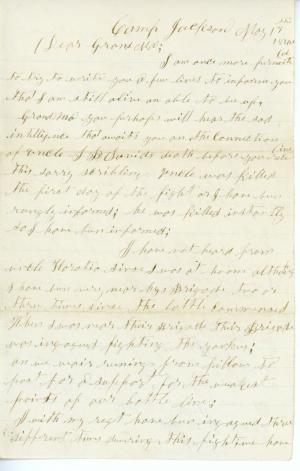 Camp Jackson May 17th
Dear Grand Ma;
I am once more permitted
to try to write you a few lines to inform you
that I am still alive an able to be up,
Grand Ma you perhaps will hear the sad
intelligence that awaits you on the Connection
of uncle J D Davids death before you
this sorry scribling. Uncle was killed
the first day of the fight or I have bun
rongly informed; he was killed instantly
so I have bun informed;
I have not heard from
uncle Horatio since I was at home although
I have bun very near his Brigade two or
three times since the battle commenced
When I was near their Brigade their Brigade
was ingaged fighting the yankees;
an we wair runing from pillow to
post for a support for the weakest
points of our battle line;
I with my regt have bun ingaged three
different times during this fight, we have